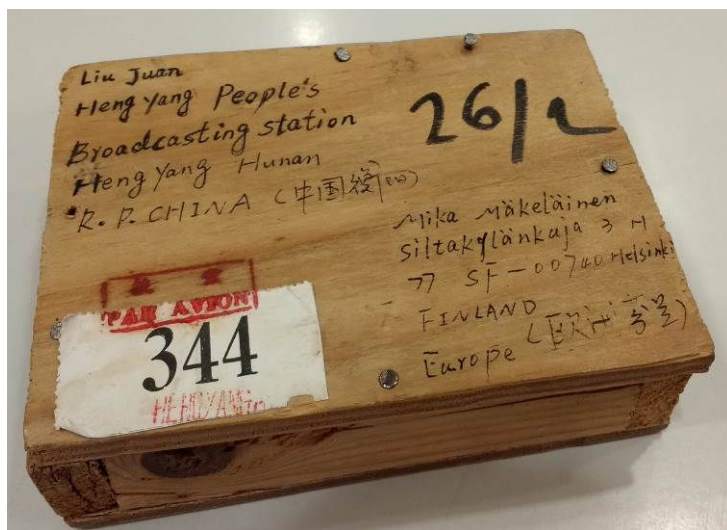 Liu Juan
Heng Yang People's
Broadcasting station
Heng Yang Hunan
R. P. CHINA (中国衡阳)
26/2
Mika Mäkeläinen
Siltakylänkuja 3 H
77 SF-00740 Helsinki
FINLAND
Europe (欧州 芬兰)
PAR AVION
344